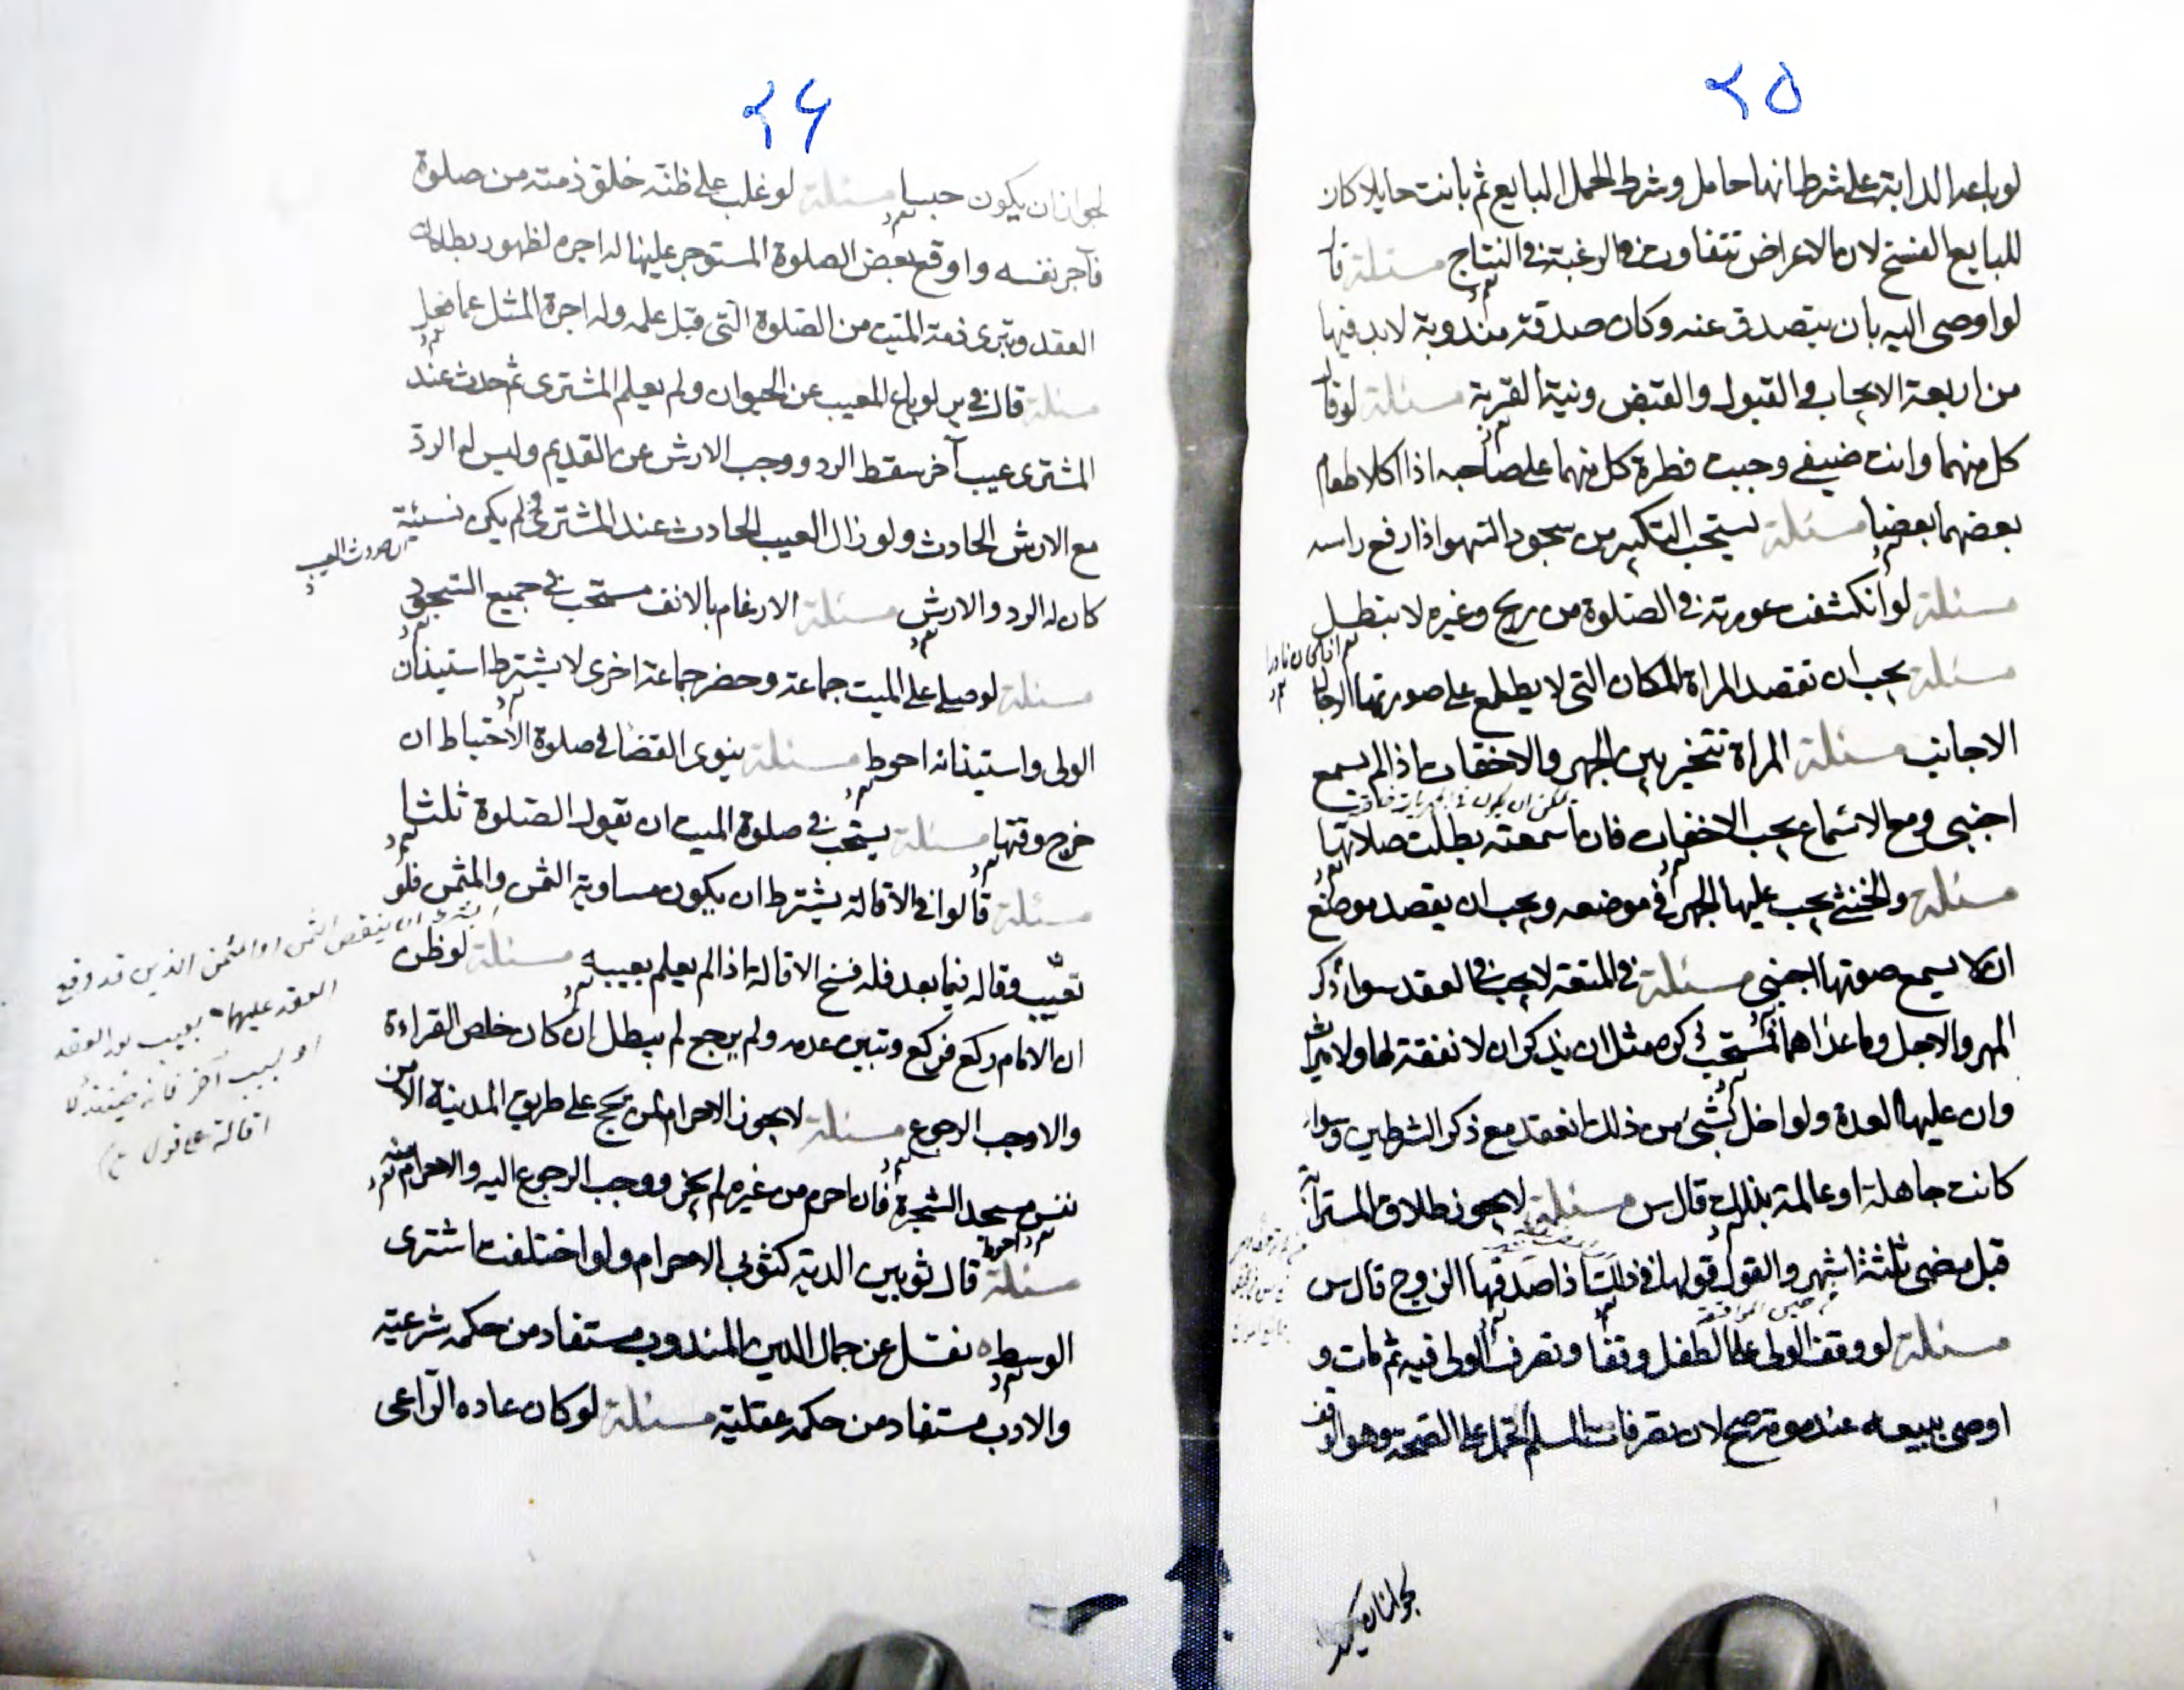 ٢٥
لو باع الدابة على شرط انها حامل وشرط الحمل البايع ثم بانت حايلا كان
للبايع الفسخ لان الاغراض تتفاوت في الرغبة في النتاج مسئلة قا
لو اوصى اليه بان يتصدق عنه وكان صدقة مندوبة لابد فيها
من اربعة الايجاب والقبول والقبض ونية القربة مسئلة لو قا
كل منهما وانت ضيفي وجبت فطرة كل منهما على صاحبه اذا اكلا طعام
بعضهما بعضا مسئلة يستحب التكبير من سجود السهو اذا رفع راسه
مسئلة لو انكشفت عورته في الصلوة من ريح وغيره لا تبطل
مسئلة يجب ان تقصد المراة المكان التي لا يطلع على صورتها الرجال
الاجانب مسئلة المراة تتخير بين الجهر والاخفات اذا لم يسمع
اجنبي ومع الاسماع يجب الاخفات فان اسمعته بطلت صلاتها
مسئلة والخنثى يجب عليها الجهر في موضعه ويجب ان يقصد موضع
ان لا يسمع صوتها اجنبي مسئلة في المتعة لا يجب في العقد سوا ذكر
المهر والاجل وما عداهما يستحب ذكره مثل ان يذكر ان لا نفقة لها ولا ميراث
وان عليها العدة ولو اخل بشئ من ذلك انعقد مع ذكر الشرطين وسواء
كانت جاهلة او عالمة بذلك قال س مسئلة لا يجوز طلاق المسترابة
قبل مضي ثلثة اشهر والقول قولها في ذلك اذا صدقها الزوج قال س
مسئلة لو وقف الولي على الطفل وقفا وتصرف الولي فيه ثم مات و
اوصى ببيعه عند موته صح لان تصرفات المسلم تحمل على الصحة وهو الوقف
لجوازان يكون
٢۶
لجوازان يكون حبسا مسئلة لو غلب على ظنه خلو ذمته من صلوة
فآجر نفسه واوقع بعض الصلوة المستوجر عليها له اجره لظهور بطلان
العقد وتبرى ذمة الميت من الصلوة التي قبل علمه وله اجرة المثل عما فعل
مسئلة قال في ير لو باع المعيب عن الحيوان ولم يعلم المشترى ثم حدث عند
المشترى عيب آخر سقط الرد ووجب الارش عن القديم وليس له الرد
مع الارش الحادث ولو زال العيب الحادث عند المشترى لم يكن نسيئة
ان حدوث العيب
كان له الرد والارش مسئلة الارغام بالانف مستحب في جميع السجود
مسئلة لو صلى على الميت جماعة وحضر جماعة اخرى لا يشترط استيذان
الولى واستيذانه احوط مسئلة ينوى القضا في صلوة الاحتياط ان
خرج وقتها مسئلة يستحب في صلوة الميت ان يقول الصلوة ثلثا
مسئلة قالوا في الاقالة يشترط ان يكون مساوية الثمن والمثمن فلو
تعيب وقاله فيما بعد فله فسخ الاقالة اذا لم يعلم بعيبه مسئلة لو ظن
ان الامام ركع فركع وتبين عدمه ولم يرجع لم يبطل ان كان خلص القراءة
والا وجب الرجوع مسئلة لا يجوز الاحرام لمن حج على طريق المدينة الا من
نفس مسجد الشجرة فان احرم من غيره لم يجز ووجب الرجوع اليه والاحرام منه
مسئلة قال ثوبين الدية كثوبي الاحرام ولو اختلفت اشترى
الوسط نقل عن جمال الدين المندوب مستفاد من حكمه شرعية
والادب مستفاد من حكمه عقلية مسئلة لو كان عاده الراعى
ان ينقص الثمن او المثمن الذين قد وقع
العقد عليها بعيب بعد العقد
او بسبب آخر فانه حينئذ لا
اقالة على قول